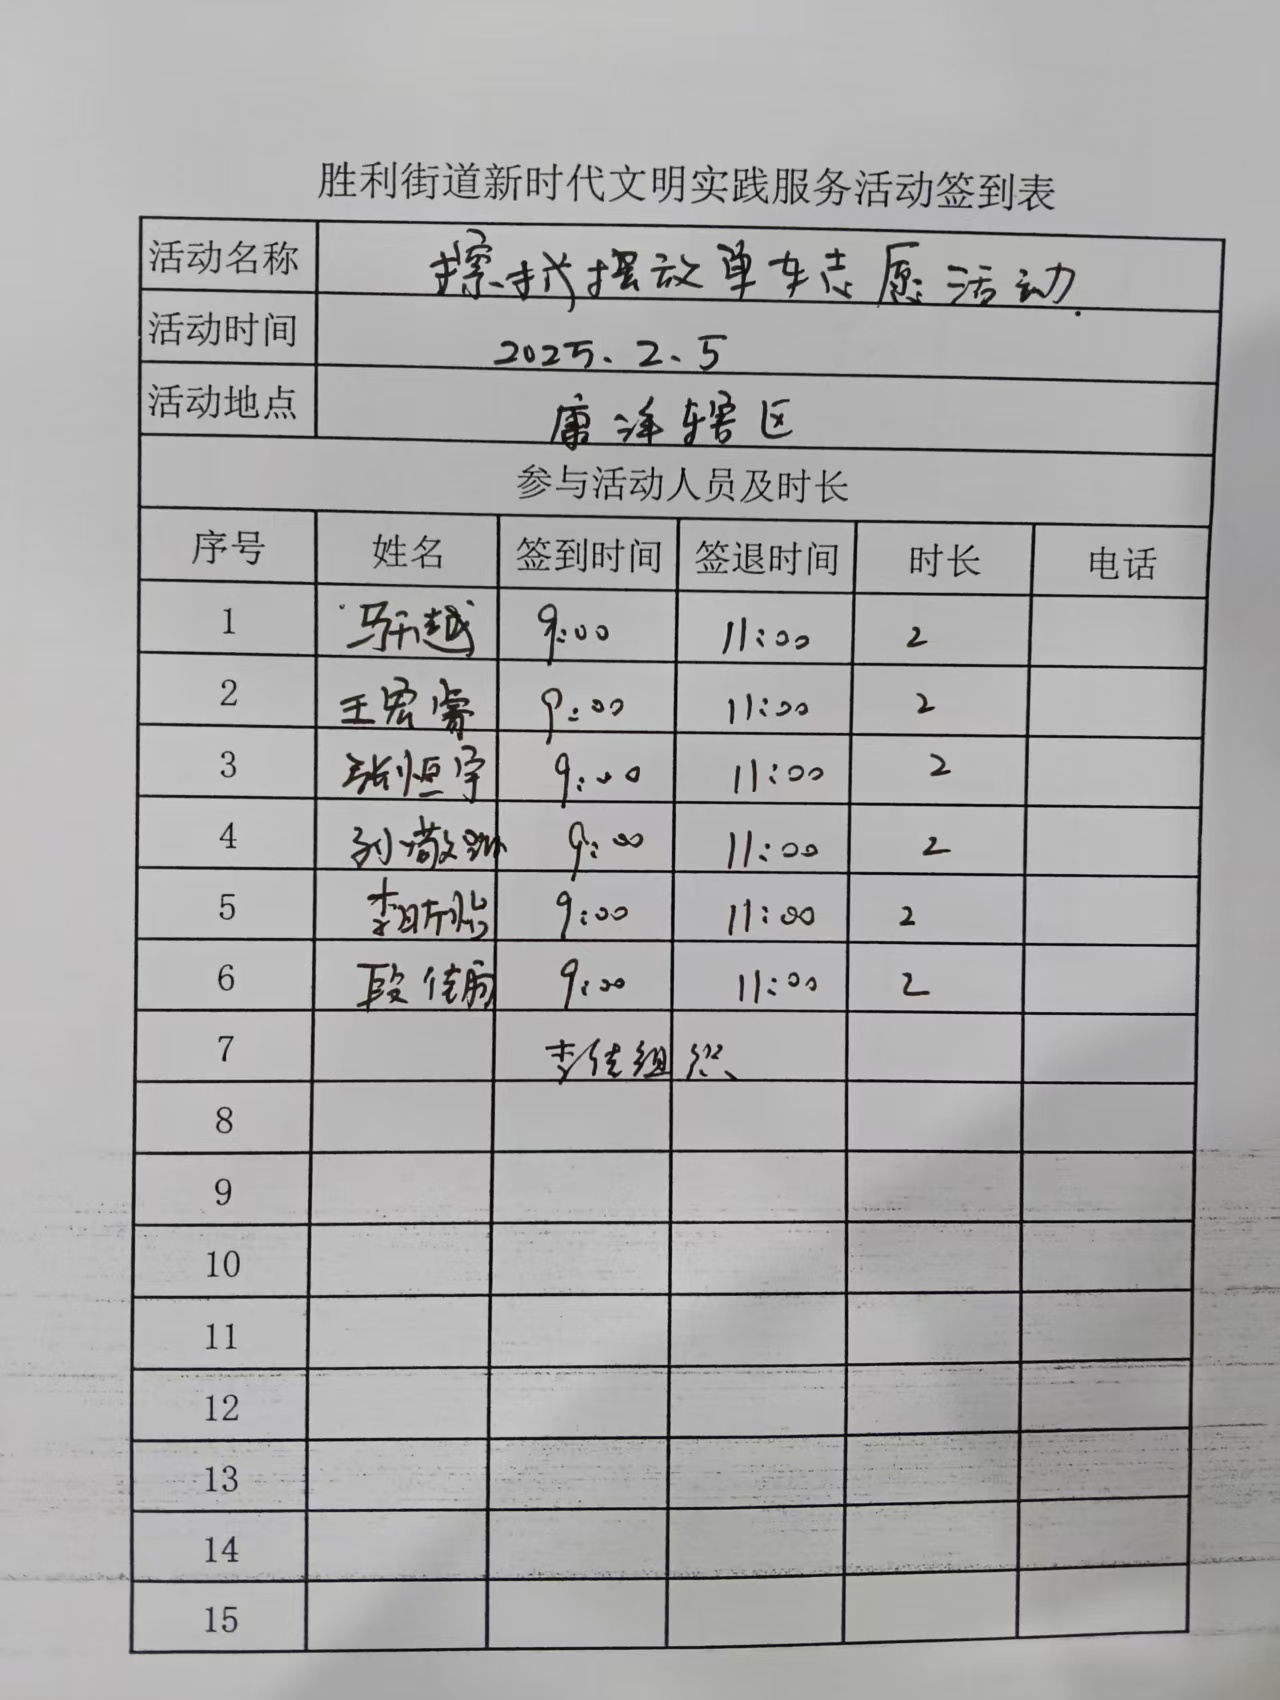 胜利街道新时代文明实践服务活动签到表
活动名称 擦拭摆放单车志愿活动
活动时间 2025.2.5
活动地点 唐泽辖区
参与活动人员及时长
序号 姓名 签到时间 签退时间 时长 电话
1 马天越 9:00 11:00 2
2 王宏睿 9:00 11:00 2
3 张恒宇 9:00 11:00 2
4 孙敬 9:00 11:00 2
5 李昕怡 9:00 11:00 2
6 段佳 9:00 11:00 2
7 李佳组织
8
9
10
11
12
13
14
15